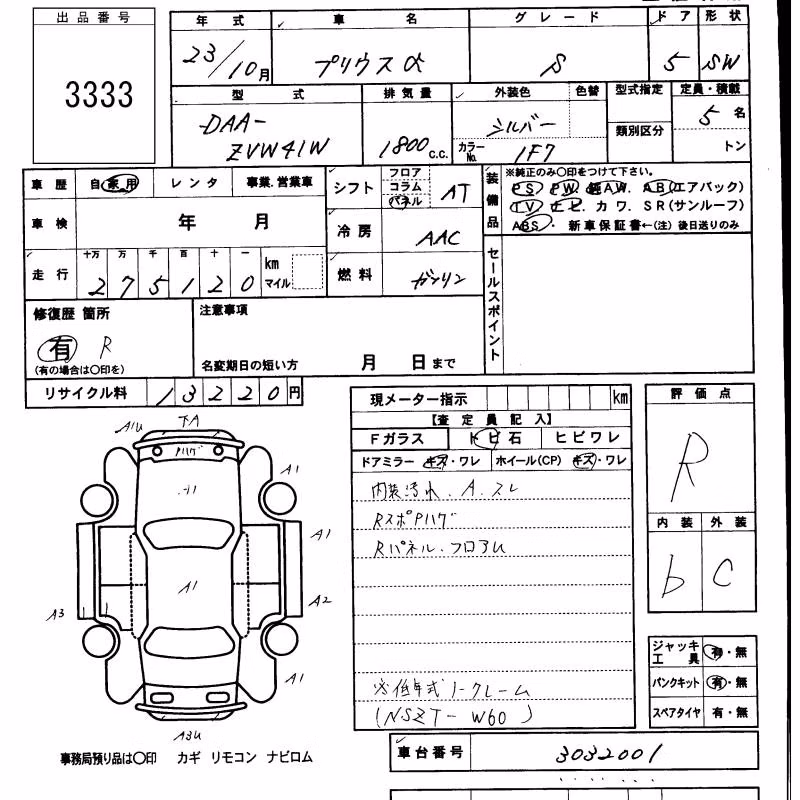 出品番号
3333
年式 車名 グレード ドア 形状
23/10月 プリウスα S 5 SW
型式 排気量 外装色 色替 型式指定 定員・積載
DAA-ZVW41W 1800c.c. シルバー 5名
カラーNo. 1F7 類別区分 トン
車歴 自家用 レンタ 事業.営業車
車検 年 月
走行 十万 万 千 百 十 一
275120 km マイル
シフト フロア コラム パネル AT
冷房 AAC
燃料 ガソリン
装備品
※純正のみ○印をつけて下さい。
PS PW AW. AB(エアバッグ)
TV ナビ カワ. SR(サンルーフ)
ABS・新車保証書←(注)後日送りのみ
セールスポイント
修復歴 箇所
有 R
(有の場合は○印を)
注意事項
名変期日の短い方 月 日まで
リサイクル料 13220円
現メーター指示 km
【査定員記入】
Fガラス トビ石 ヒビワレ
ドアミラー キズ・ワレ ホイール(CP) キズ・ワレ
内装汚れ. A. スレ
RスポPハゲ
Rパネル.フロアU
※低年式ノークレーム
(NSZT-W60)
評価点
R
内装 外装
b C
ジャッキ工具 有・無
パンクキット 有・無
スペアタイヤ 有・無
車台番号 3032001
下A
A1U
Pハゲ
A1
A1
A1
A1
A3
A2
A1
A3U
事務局預り品は○印 カギ リモコン ナビロム